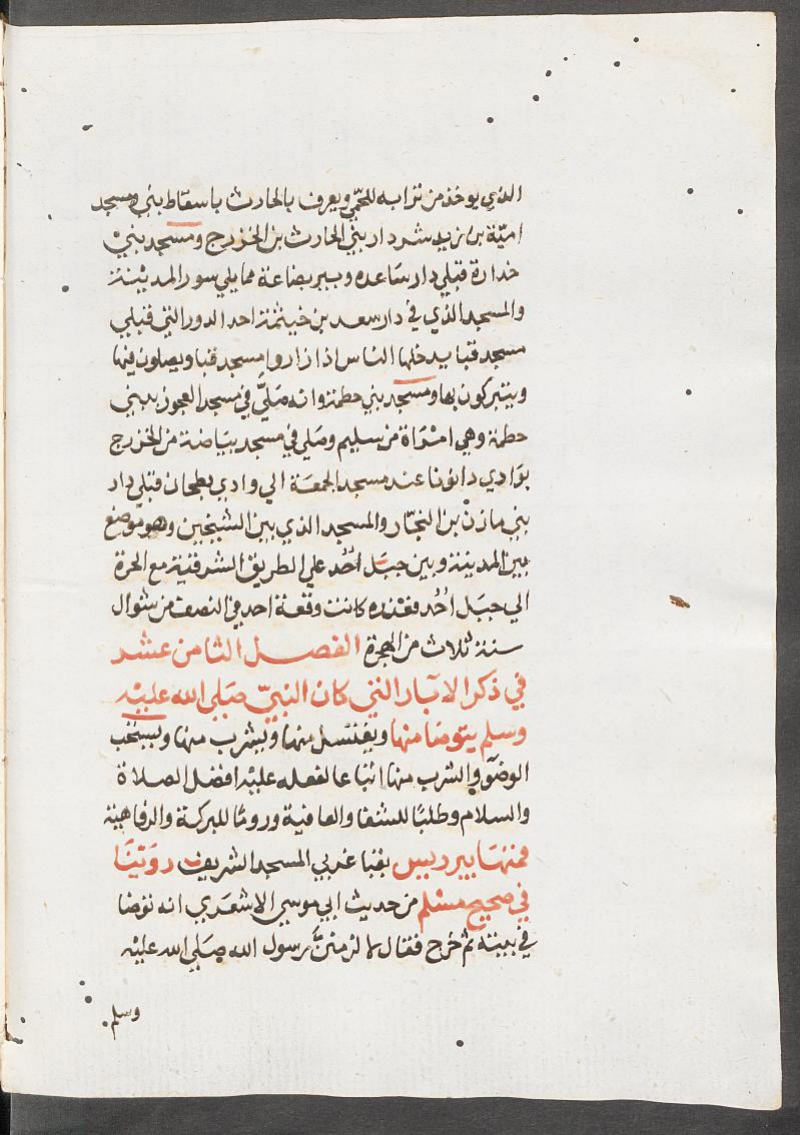 الذي يوخذ من ترابه للحمي ويعرف بالحارث باسقاط بني ومسجد
امية بن زيد شر دار بني الحارث بن الخزرج ومسجد بني
خدارة قبلي دار ساعده وبير بضاعة مما يلي سور المدينة
والمسجد الذي في دار سعد بن خيثمة احد الدور التي قبلي
مسجد قبا يدخلها الناس اذا زاروا مسجد قبا ويصلون فيها
ويتبركون بها ومسجد بني حطمة وانه صلي في مسجد العجوز ببني
حطمة وهي امراة من سليم وصلي في مسجد بياضة من الخزرج
بوادي دانونا عند مسجد الجمعة الي وادي بطحان قبلي دار
بني مازن بن النجار والمسجد الذي بين الشيخين وهو موضع
بين المدينة وبين جبل احُد علي الطريق الشرقية مع الحرة
الي جبل احُد فعنده كانت وقعة احد في النصف من شوال
سنة ثلاث من الهجرة الفصل الثامن عشر
في ذكر الابار التي كان النبيّ صلي الله عليه
وسلم يتوضا منها ويغتسل منها ويشرب منها ويستحب
الوضو والشرب منها اتباعا لفعله عليه افضل الصلاة
والسلام وطلبًا للشفا والعافية وروما للبركة والرفاهية
فمنها بير ريس بقبا غربي المسجد الشريف روينا
في صحيح مسلم من حديث ابي موسي الاشعري انه توضا
في بيته ثم خرج فقال لالزمنّ رسول الله صلي الله عليه
وسلم